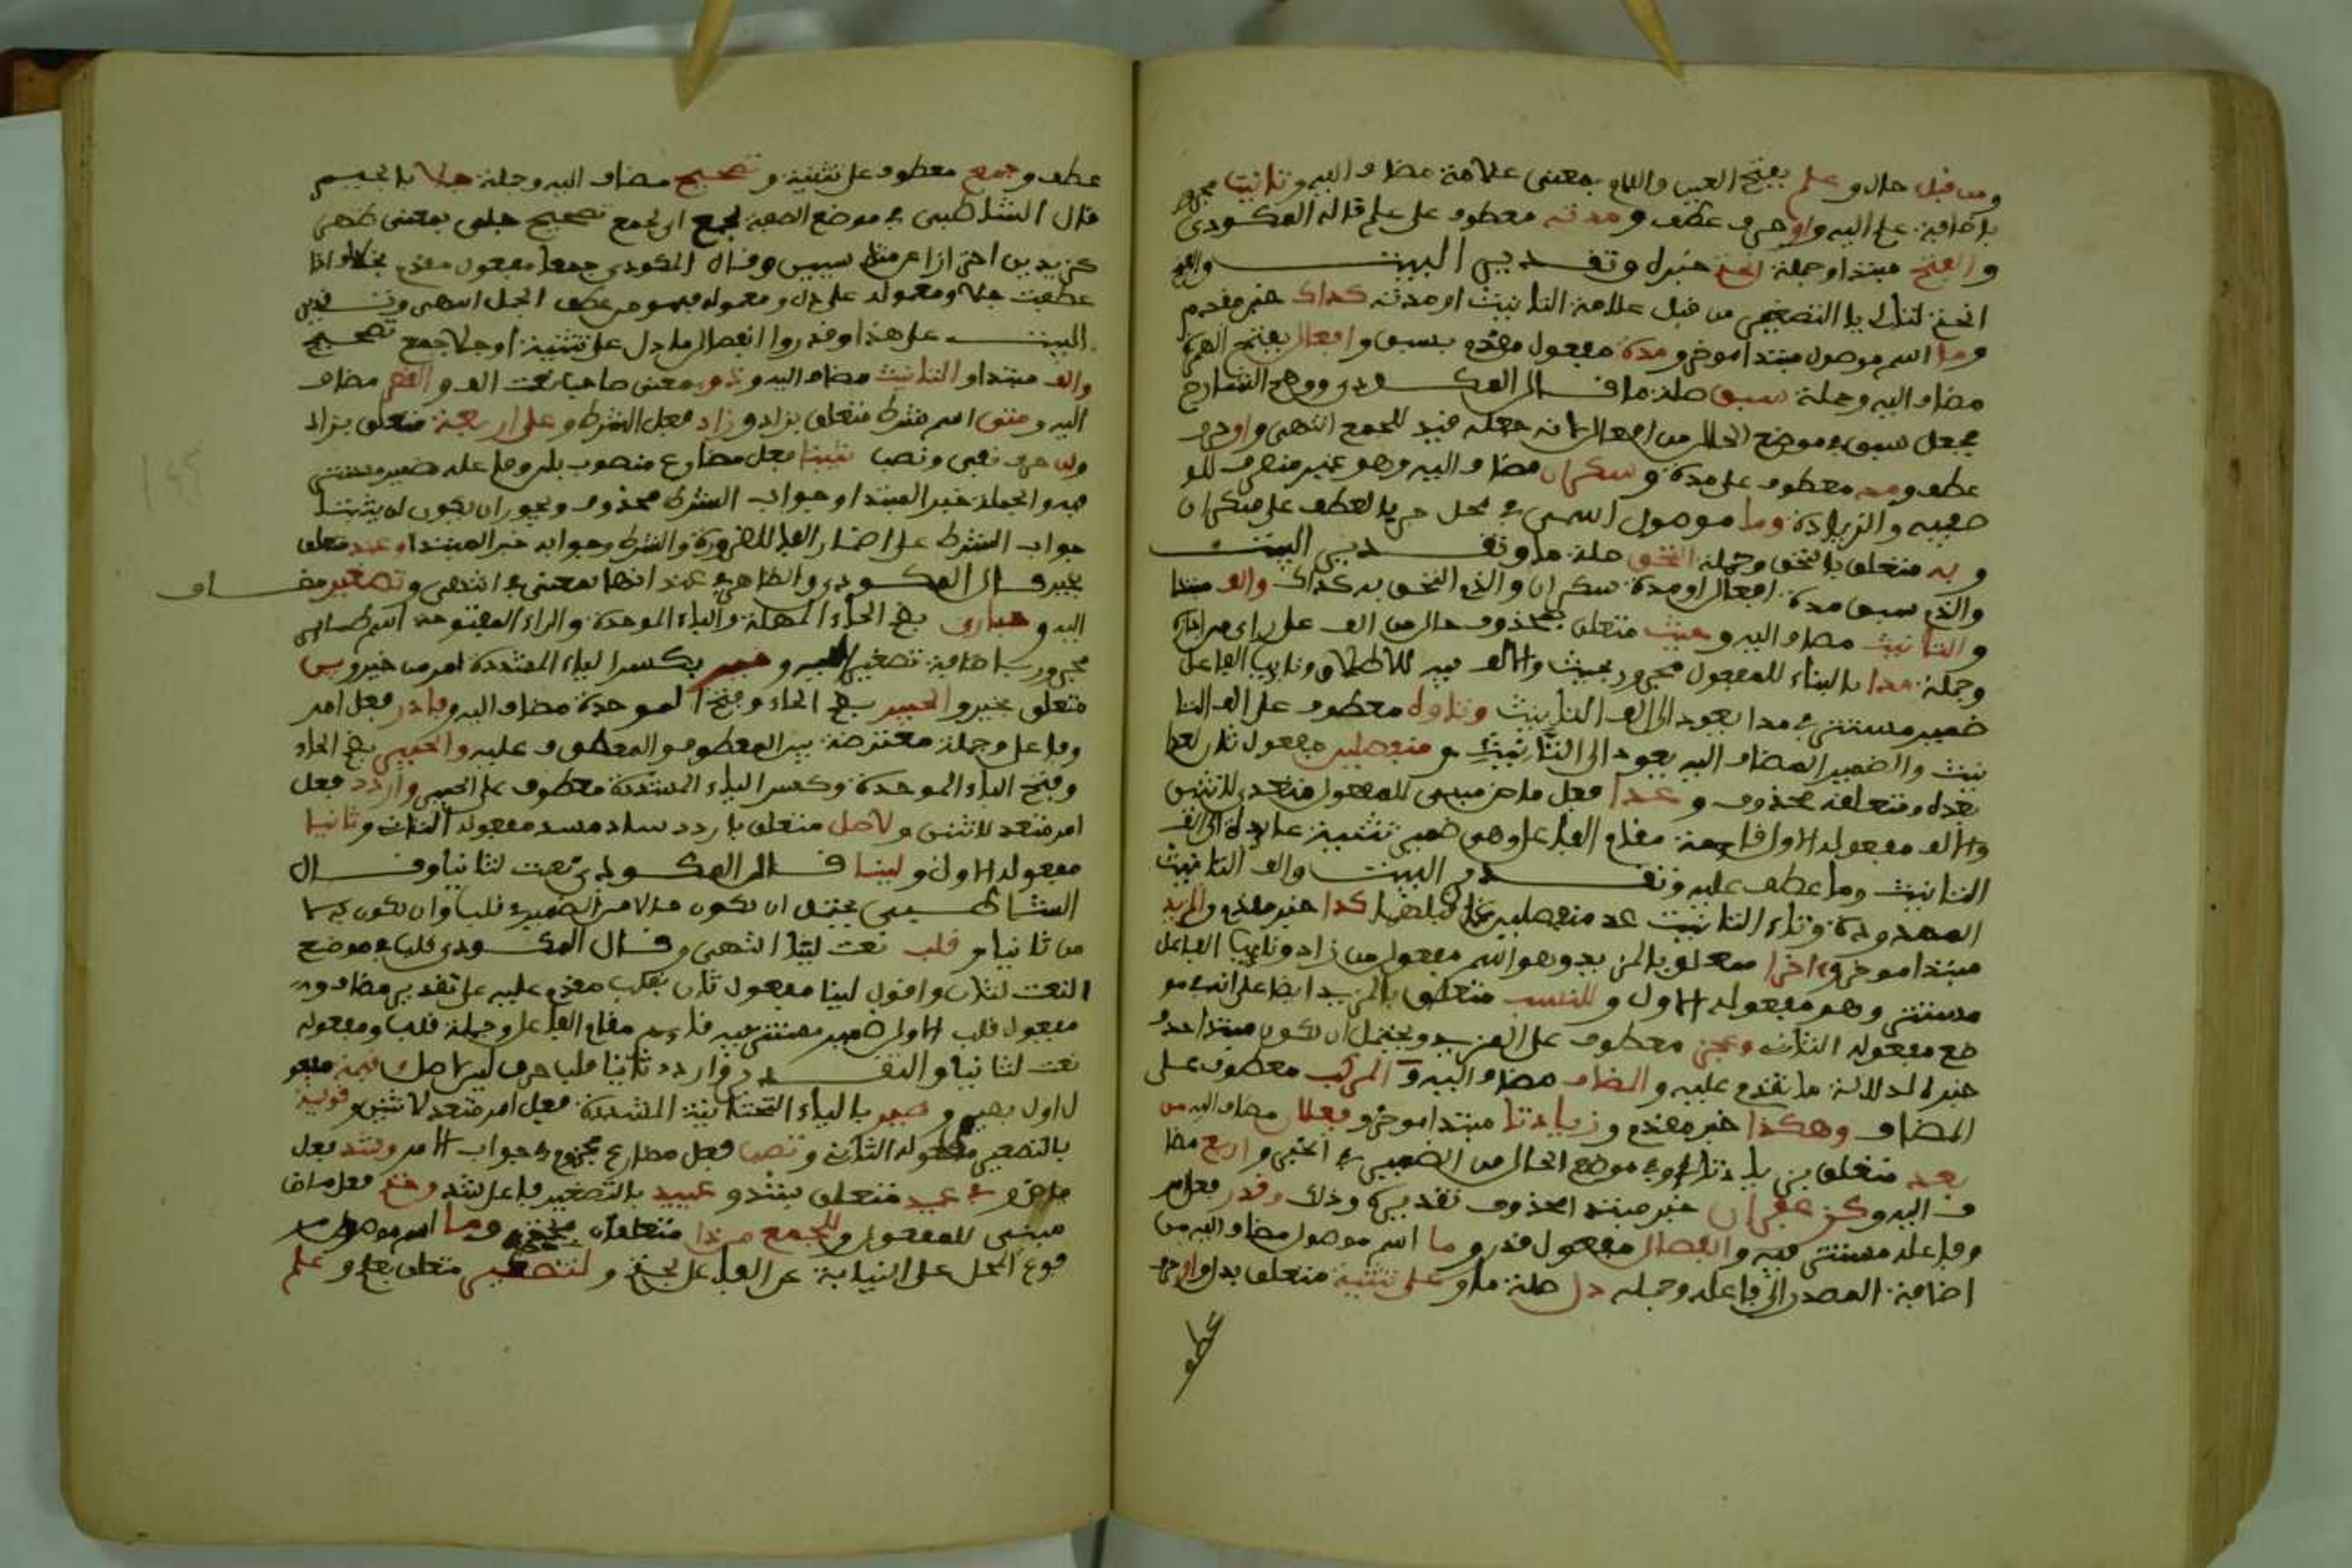 ومن قبل حال وعلم بفتح العين واللام بمعنى علامة مضاف اليه وتانيث مجرور
باضافة علم اليه واو حرف عطف ومدته معطوف على علم قاله المكودي
والفتح مبتدا وجملة انحتم خبره وتقدير البيت والفتح
انحتم لتالي يا التصغير من قبل علامة التانيث او مدته كذاك خبر مقدم
وما اسم موصول مبتدا موخر ومدة مفعول مقدم بسبق وافعال بفتح الهمزة
مضاف اليه وجملة سبق صلة ما قال المكودي ووهم الشارح
فجعل سبق في موضع الحال من افعال لانه جعله قيد للجمع انتهى واو حرف
عطف ومد معطوف على مدة وسكران مضاف اليه وهو غير منصرف للو
صفية والزيادة وما موصول اسمي في محل جر بالعطف على سكران
وبه متعلق بالتحق وجملة التحق صلة ما وتقدير البيت
والذي سبق مدة افعال او مدة سكران والذي التحق به كذاك والف مبتدا
والتانيث مضاف اليه وحيث متعلق بمحذوف حال من الف على راي مراتح
وجملة مدا بالبناء للمفعول مجرور بحيث والالف فيه للاطلاق ونايب الفاعل
ضمير مستتر في مدا يعود الى الف التانيث وتاوه معطوف على الف التا
نيث والضمير المضاف اليه يعود الى التانيث ومنفصلين مفعول ثان لعدا
بعده ومتعلقه محذوف وعدا فعل ماض مبني للمفعول متعد لاثنين
والالف مفعوله الاول قايمة مقام الفاعل وهي ضمير تثنية عايدة الى الف
التانيث وما عطف عليه وتقدير البيت والف التانيث
الممدودة وتاء التانيث عد منفصلين عما قبلهما كذا خبر مقدم والمزيد
مبتدا موخر واخرا متعلق بالمزيد وهو اسم مفعول من زاد ونايب الفاعل
مستتر وهو مفعوله الاول وللنسب متعلق بالمزيد ايضا على انه في مو
ضع مفعوله الثاني وعجز معطوف على المزيد ويحتمل ان يكون مبتدا حذف
خبره لدلالة ما تقدم عليه والمضاف مضاف اليه والمركب معطوف على
المضاف وهكذا خبر مقدم وزيادتا مبتدا موخر وفعلان مضاف اليه من
بعد متعلق بزيادتا او في موضع الحال من الضمير في الخبر واربع مضا
ف اليه وكزعفران خبر مبتدا محذوف تقديره وذلك وقدر فعل امر
وفاعله مستتر فيه وانفصال مفعول قدر وما اسم موصول مضاف اليه من
اضافة المصدر الى فاعله وجملة دل صلة ما وعلى تثنية متعلق بدل واو حرف
عطف
عطف وجمع معطوف على تثنية وتصحيح مضاف اليه وجملة جلا بالجيم
قال الشاطبي في موضع الصفة لجمع اي لجمع تصحيح جلي بمعنى ظهر
كزيدين احترازا عن مثل سنين وقال المكودي جمعا مفعول مقدم بجلا واذا
عطفت جلا ومعموله على دل ومعموله فهو من عطف الجمل انتهى وتقدير
البيت على هذا وقدروا انفصال ما دل على تثنية او جلا جمع تصحيح
والف مبتدا والتانيث مضاف اليه وذو بمعنى صاحب نعت الف والقصر مضاف
اليه ومتى اسم شرط متعلق بزاد وزاد فعل الشرط وعلى اربعة متعلق بزاد
ولن حرف نفي ونصب يثبتا فعل مضارع منصوب بلن وفاعله ضمير مستتر
فيه والجملة خبر المبتدا وجواب الشرط محذوف ويجوز ان يكون لن يثبتا
جواب الشرط على اضمار الفا للضرورة والشرط وجوابه خبر المبتدا وعند متعلق
بخير قال المكودي والظاهر في عند انها بمعنى في انتهى وتصغير مضاف
اليه وحبارى بضم الحاء المهملة والباء الموحدة والراء المفتوحة اسم طاير
مجرور باضافة تصغير اليه وخير بكسر الياء المشددة امر من خير وبين
متعلق بخير والحبيرى بضم الحاء وفتح الموحدة مضاف اليه وبادر فعل امر
وفاعل وجملة معترضة بين المعطوف والمعطوف عليه والحبير بضم الحاء
وفتح الباء الموحدة وكسر الياء المشددة معطوف على الحبيرى واردد فعل
امر متعد لاثنين ولاصل متعلق باردد ساد مسد مفعوله الثاني وثانيا
مفعوله الاول ولينا قال المكودي نعت لثانيا وقال
الشاطبي يحتمل ان يكون حالا من الضمير في قلب وان يكون بدلا
من ثانيا وقلب نعت لينا انتهى وقال المكودي قلب في موضع
النعت لثان واقول لينا مفعول ثان بقلب مقدم عليه على تقدير مضاف
مفعول قلب الاول ضمير مستتر فيه قايم مقام الفاعل وجملة قلب ومفعوله
نعت لثانيا والتقدير واردد ثانيا قلب حرف لين لاصل وقيمة مفعو
ل اول بصير وصير بالياء التحتانية المشددة فعل امر متعد لاثنين وقويمة
بالتصغير مفعوله الثاني وتصب فعل مضارع مجزوم في جواب الامر وشذ فعل
ماض وفي عيد متعلق بشذ وعييد بالتصغير فاعل شذ وحتم فعل ماض
مبني للمفعول وللجمع من ذا متعلقان بحتم وما اسم موصول مر
فوع المحل على النيابة عن الفاعل بحتم ولتصغير متعلق بعلم وعلم